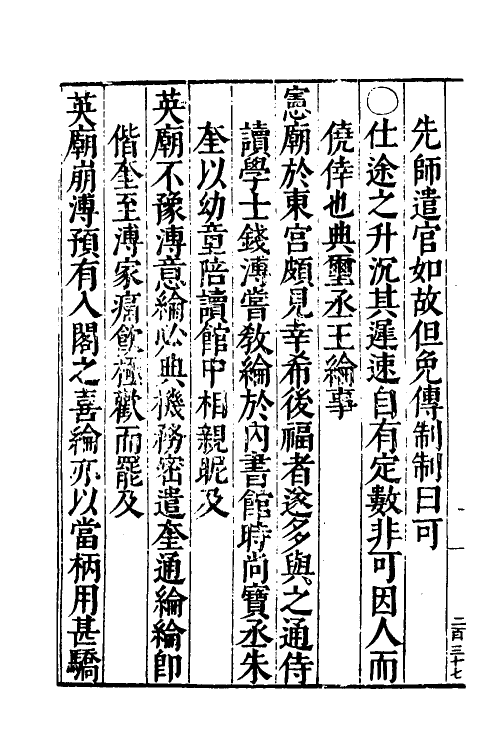 先師遣官如故但免傳制制曰可
〇仕途之升沉其遲速自有定數非可因人而
僥倖也典璽丞王綸事
憲廟於東宮頗見幸希後福者遂多與之通侍
讀學士錢溥嘗教綸於內書館時尚寶丞朱
奎以幼童陪讀館中相親昵及
英廟不豫溥意綸必典機務密遣奎通綸綸即
偕奎至溥家痛飲極歡而罷及
英廟崩溥預有入閣之喜綸亦以當柄用甚驕
二百三十七